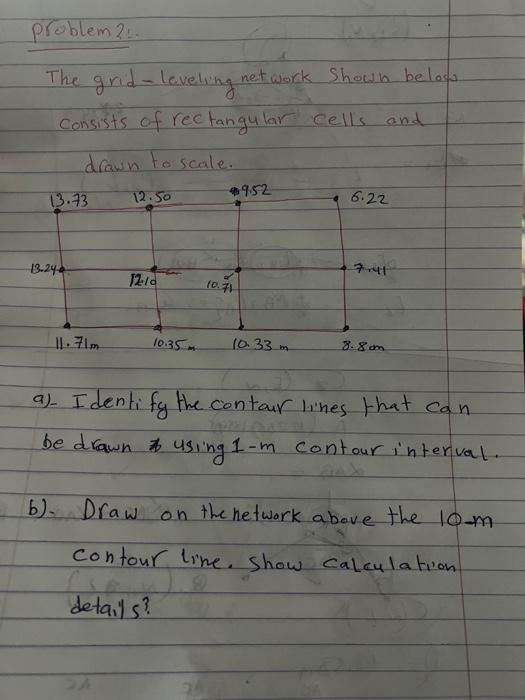 problem 2:.
The grid-leveling network Shown below
consists of rectangular cells and
drawn to scale.
13.73 12.50 9.52 6.22
13.24 12.10 10.71 7.41
11.71m 10.35 m 10.33 m 8.80m
a)- Identify the contour lines that can
be drawn using 1-m contour interval.
b)- Draw on the network above the 10-m
contour line. show calculation
details?